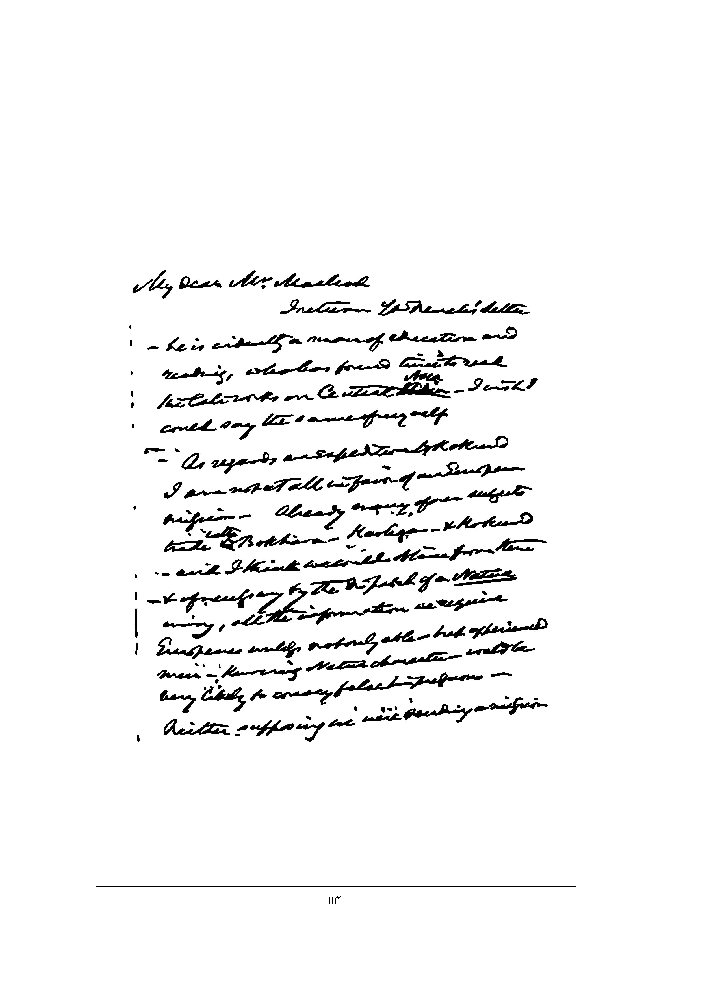 My dear Mr. Macleod
I return Ld French's letter
- he is evidently a man of education and
reading, who has found time to read
the late works on Central Asia - I wish I
could say the same of myself
- As regards an expedition to Kokund
I am not at all in favor of an European
mission - Already many of our subjects
trade with Bokhara - Kashgar - & Kokund
- and I think we could obtain from them
- & if necessary by the dispatch of a Native
envoy, all the information we require
Europeans unless not only able - but experienced
men - knowing Native character - would be
very likely to convey false impressions -
Neither supposing we were sending a mission
۱۱۳